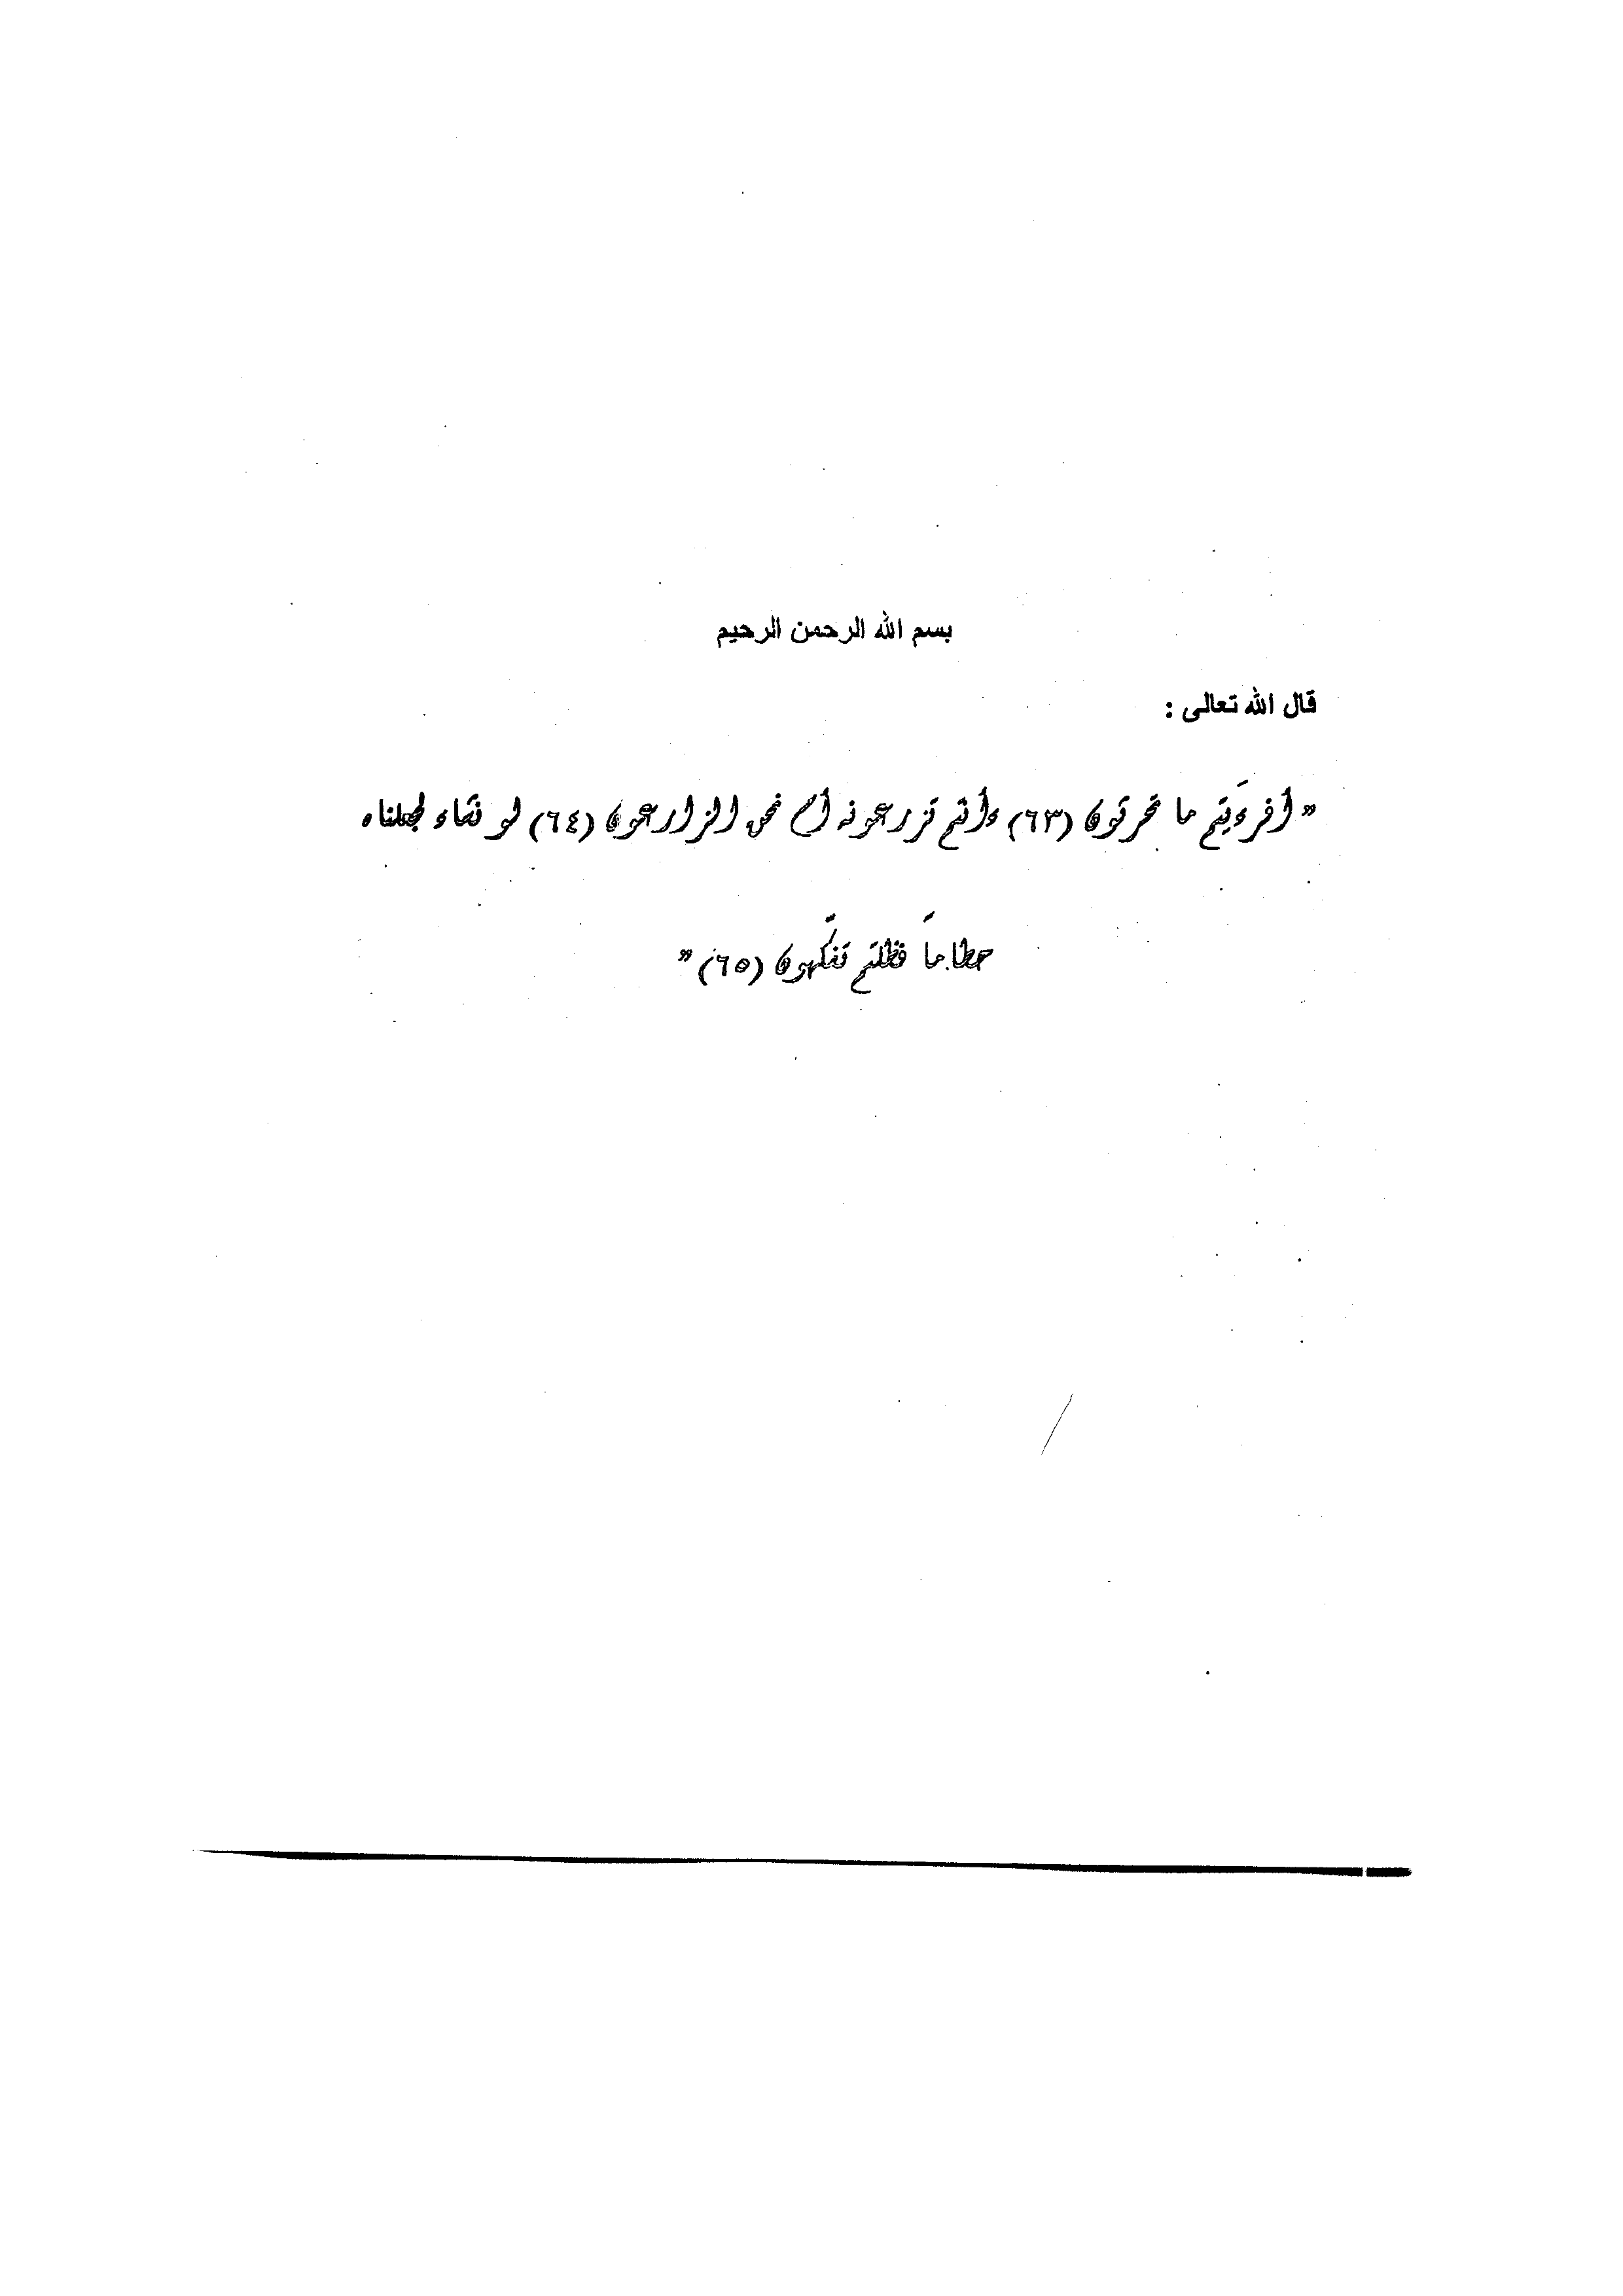 بسم الله الرحمن الرحيم
قال الله تعالى :
" أفرءَيتم ما تحرثون (٦٣) ءأنتم تزرعونه أم نحن الزارعون (٦٤) لو نشاء لجعلناه
حطاماً فظلتم تفكّهون (٦٥) "